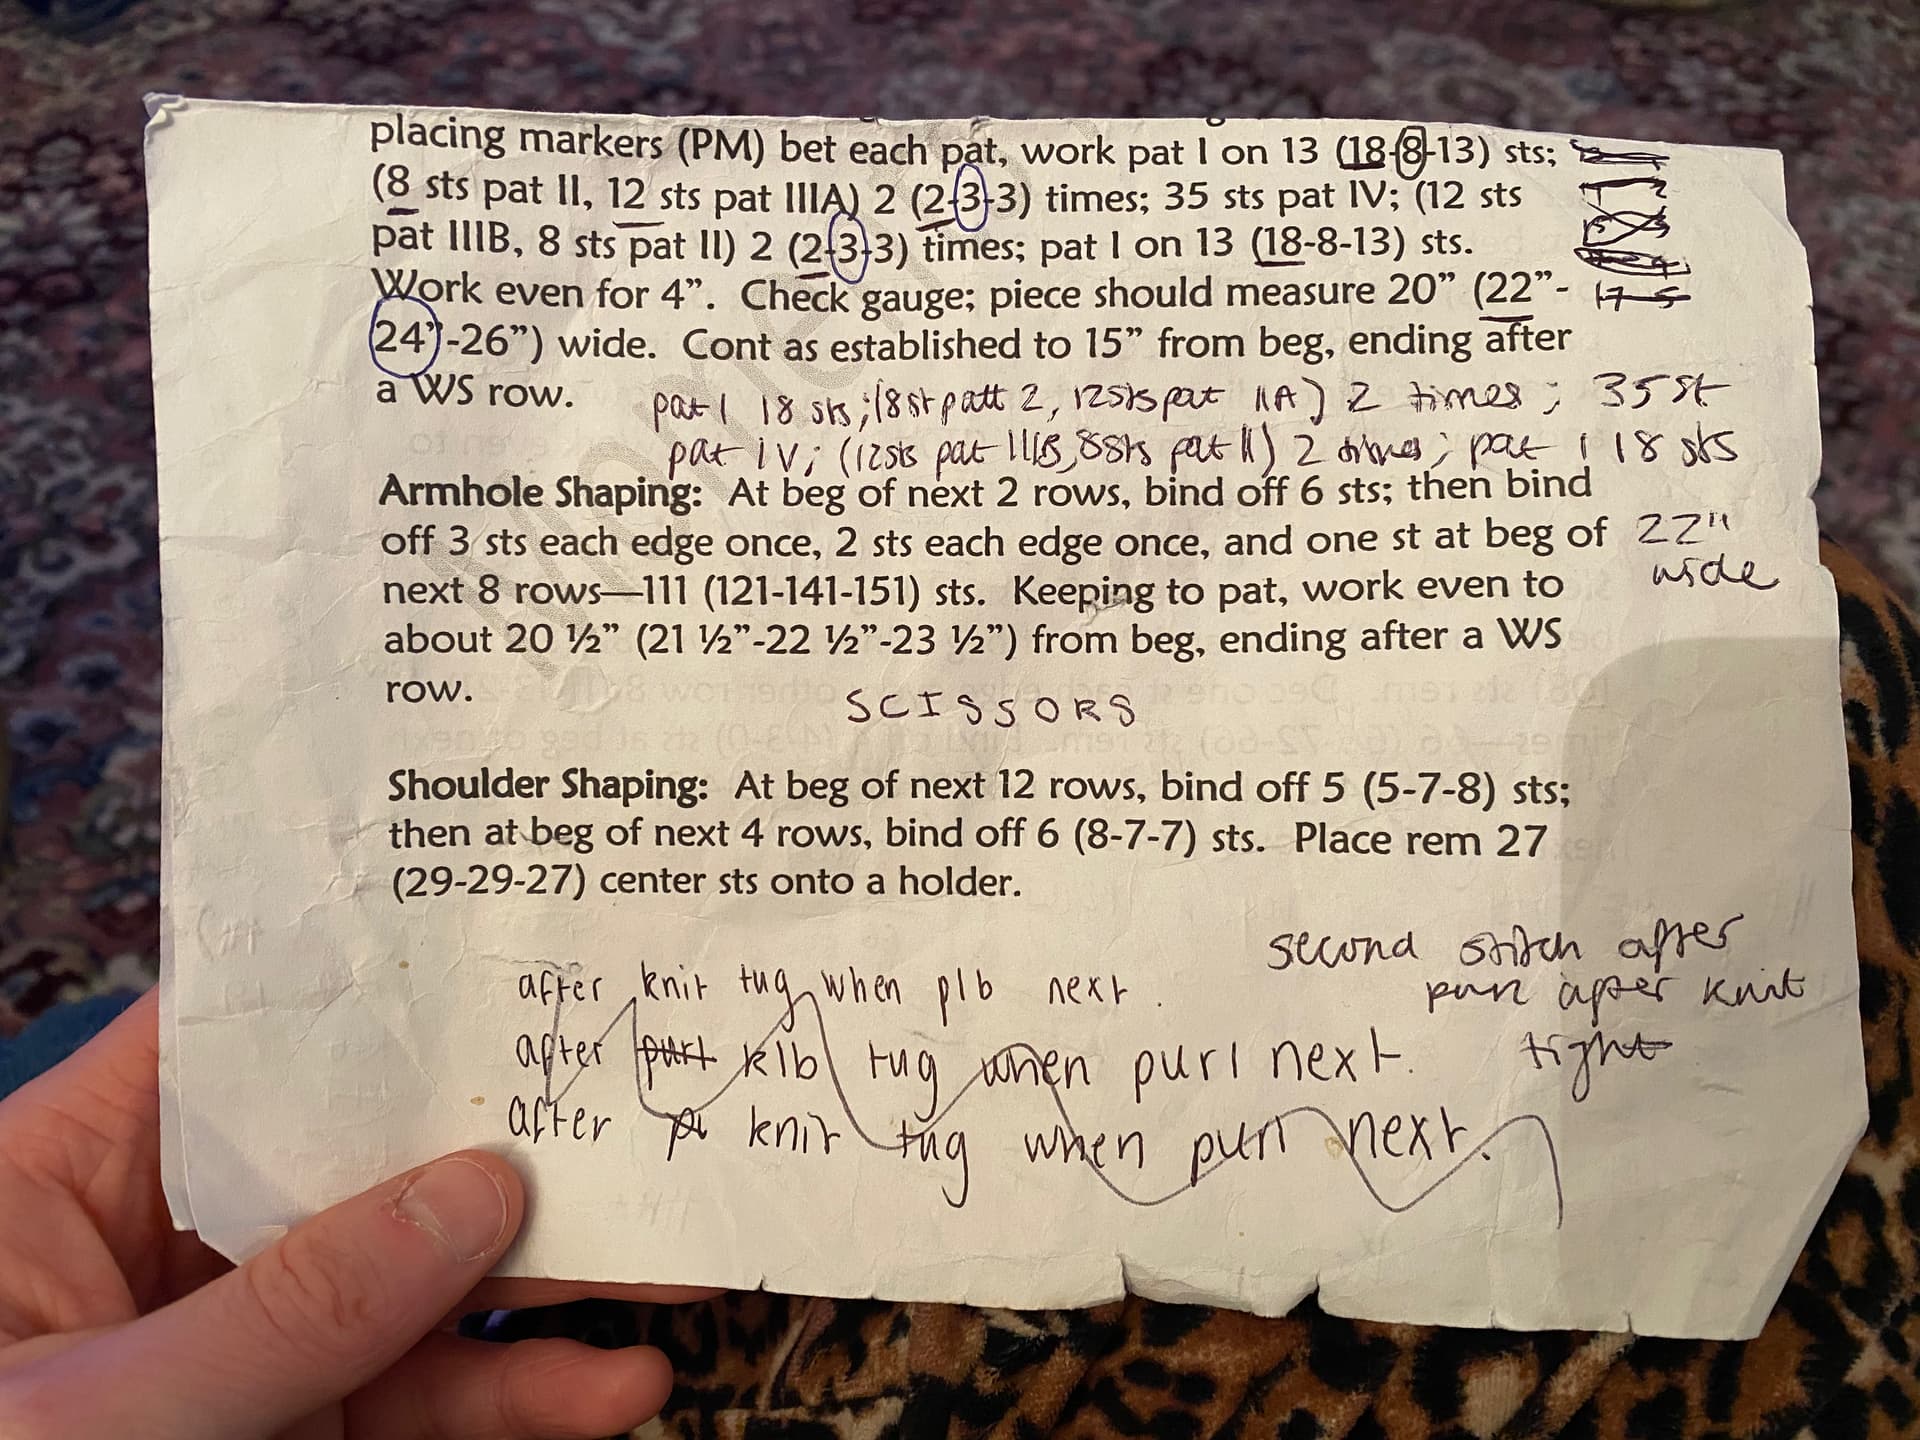 placing markers (PM) bet each pat, work pat I on 13 (18-8-13) sts;
(8 sts pat II, 12 sts pat IIIA) 2 (2-3-3) times; 35 sts pat IV; (12 sts
pat IIIB, 8 sts pat II) 2 (2-3-3) times; pat I on 13 (18-8-13) sts.
Work even for 4”. Check gauge; piece should measure 20” (22”-
24”-26”) wide. Cont as established to 15” from beg, ending after
a WS row.
pat I 18 sts; (8 st patt 2, 12 sts pat IIA) 2 times; 35 st
pat IV; (12 sts pat IIIB, 8 sts pat II) 2 times; pat I 18 sts
Armhole Shaping: At beg of next 2 rows, bind off 6 sts; then bind
off 3 sts each edge once, 2 sts each edge once, and one st at beg of
next 8 rows—111 (121-141-151) sts. Keeping to pat, work even to
about 20 ½” (21 ½”-22 ½”-23 ½”) from beg, ending after a WS
row.
22"
wide
SCISSORS
Shoulder Shaping: At beg of next 12 rows, bind off 5 (5-7-8) sts;
then at beg of next 4 rows, bind off 6 (8-7-7) sts. Place rem 27
(29-29-27) center sts onto a holder.
second stitch after
purl after knit
tight
after knit tug when p1b next.
after purl k1b tug when purl next.
after knit tug when purl next.